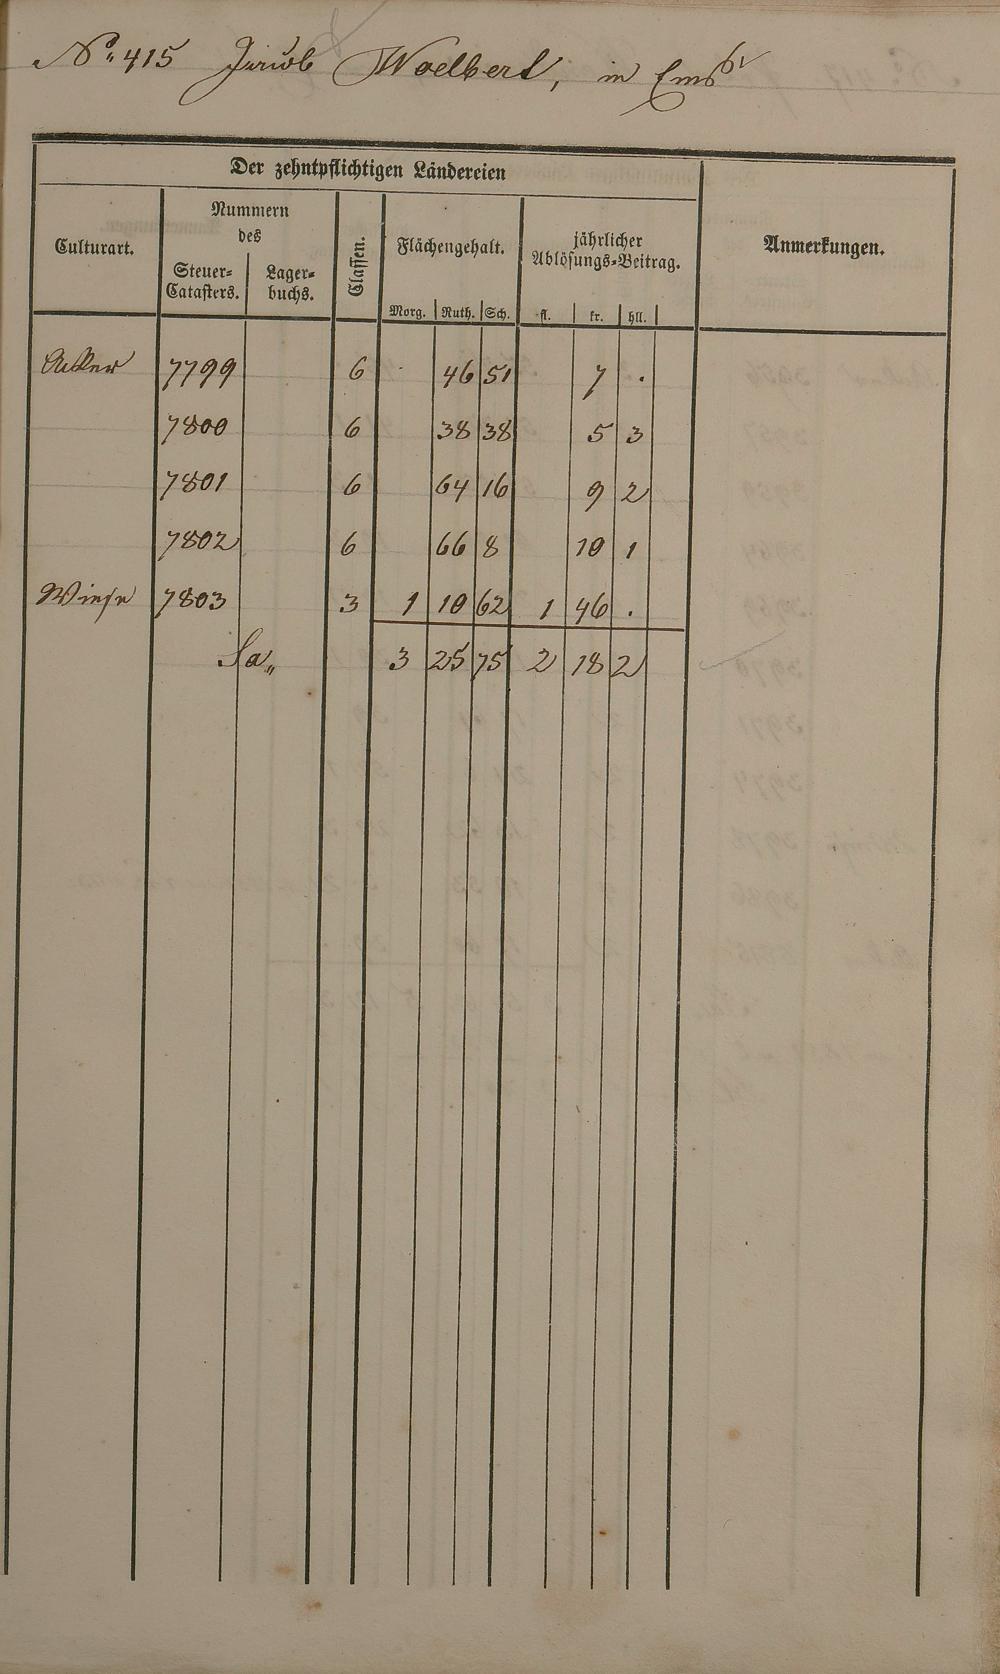 No. 415 Jacob Woelbert, in Ems
Der zehntpflichtigen Ländereien
Culturart.
Nummern
des
Steuer-
Catasters.
Lager-
buchs.
Classen.
Flächengehalt.
Morg. Ruth. Sch.
jährlicher
Ablösungs-Beitrag.
fl. kr. hll.
Anmerkungen.
Acker 7799 6 . 46 51 7 .
7800 6 38 38 5 3
7801 6 64 16 9 2
7802 6 66 8 10 1
Wiese 7803 3 1 10 62 1 46 .
Sa. 3 25 75 2 18 2